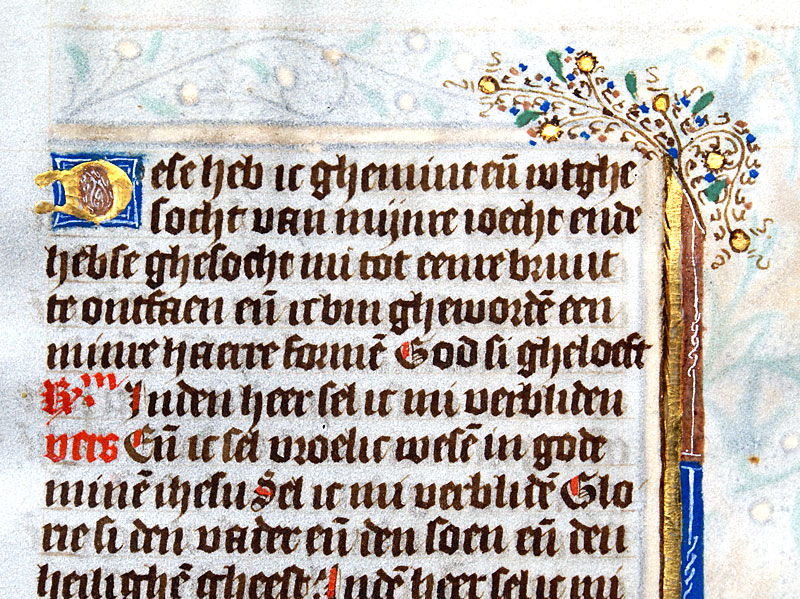 Dese heb ic ghemint eñ wtghe
socht van mijnre ioecht ende
hebse ghesocht mi tot eenre bruut
te ontfaen eñ ic bin ghewordē een
minre haerre formē God si gheloeft
In den heer sel ic mi verbliden
vers Eñ ic sel vroelic wesē in gode
minē ihesu Sel ic mi verblidē Glo
rie si den vader eñ den soen eñ den
heilighē gheest Indē heer sel ic mi